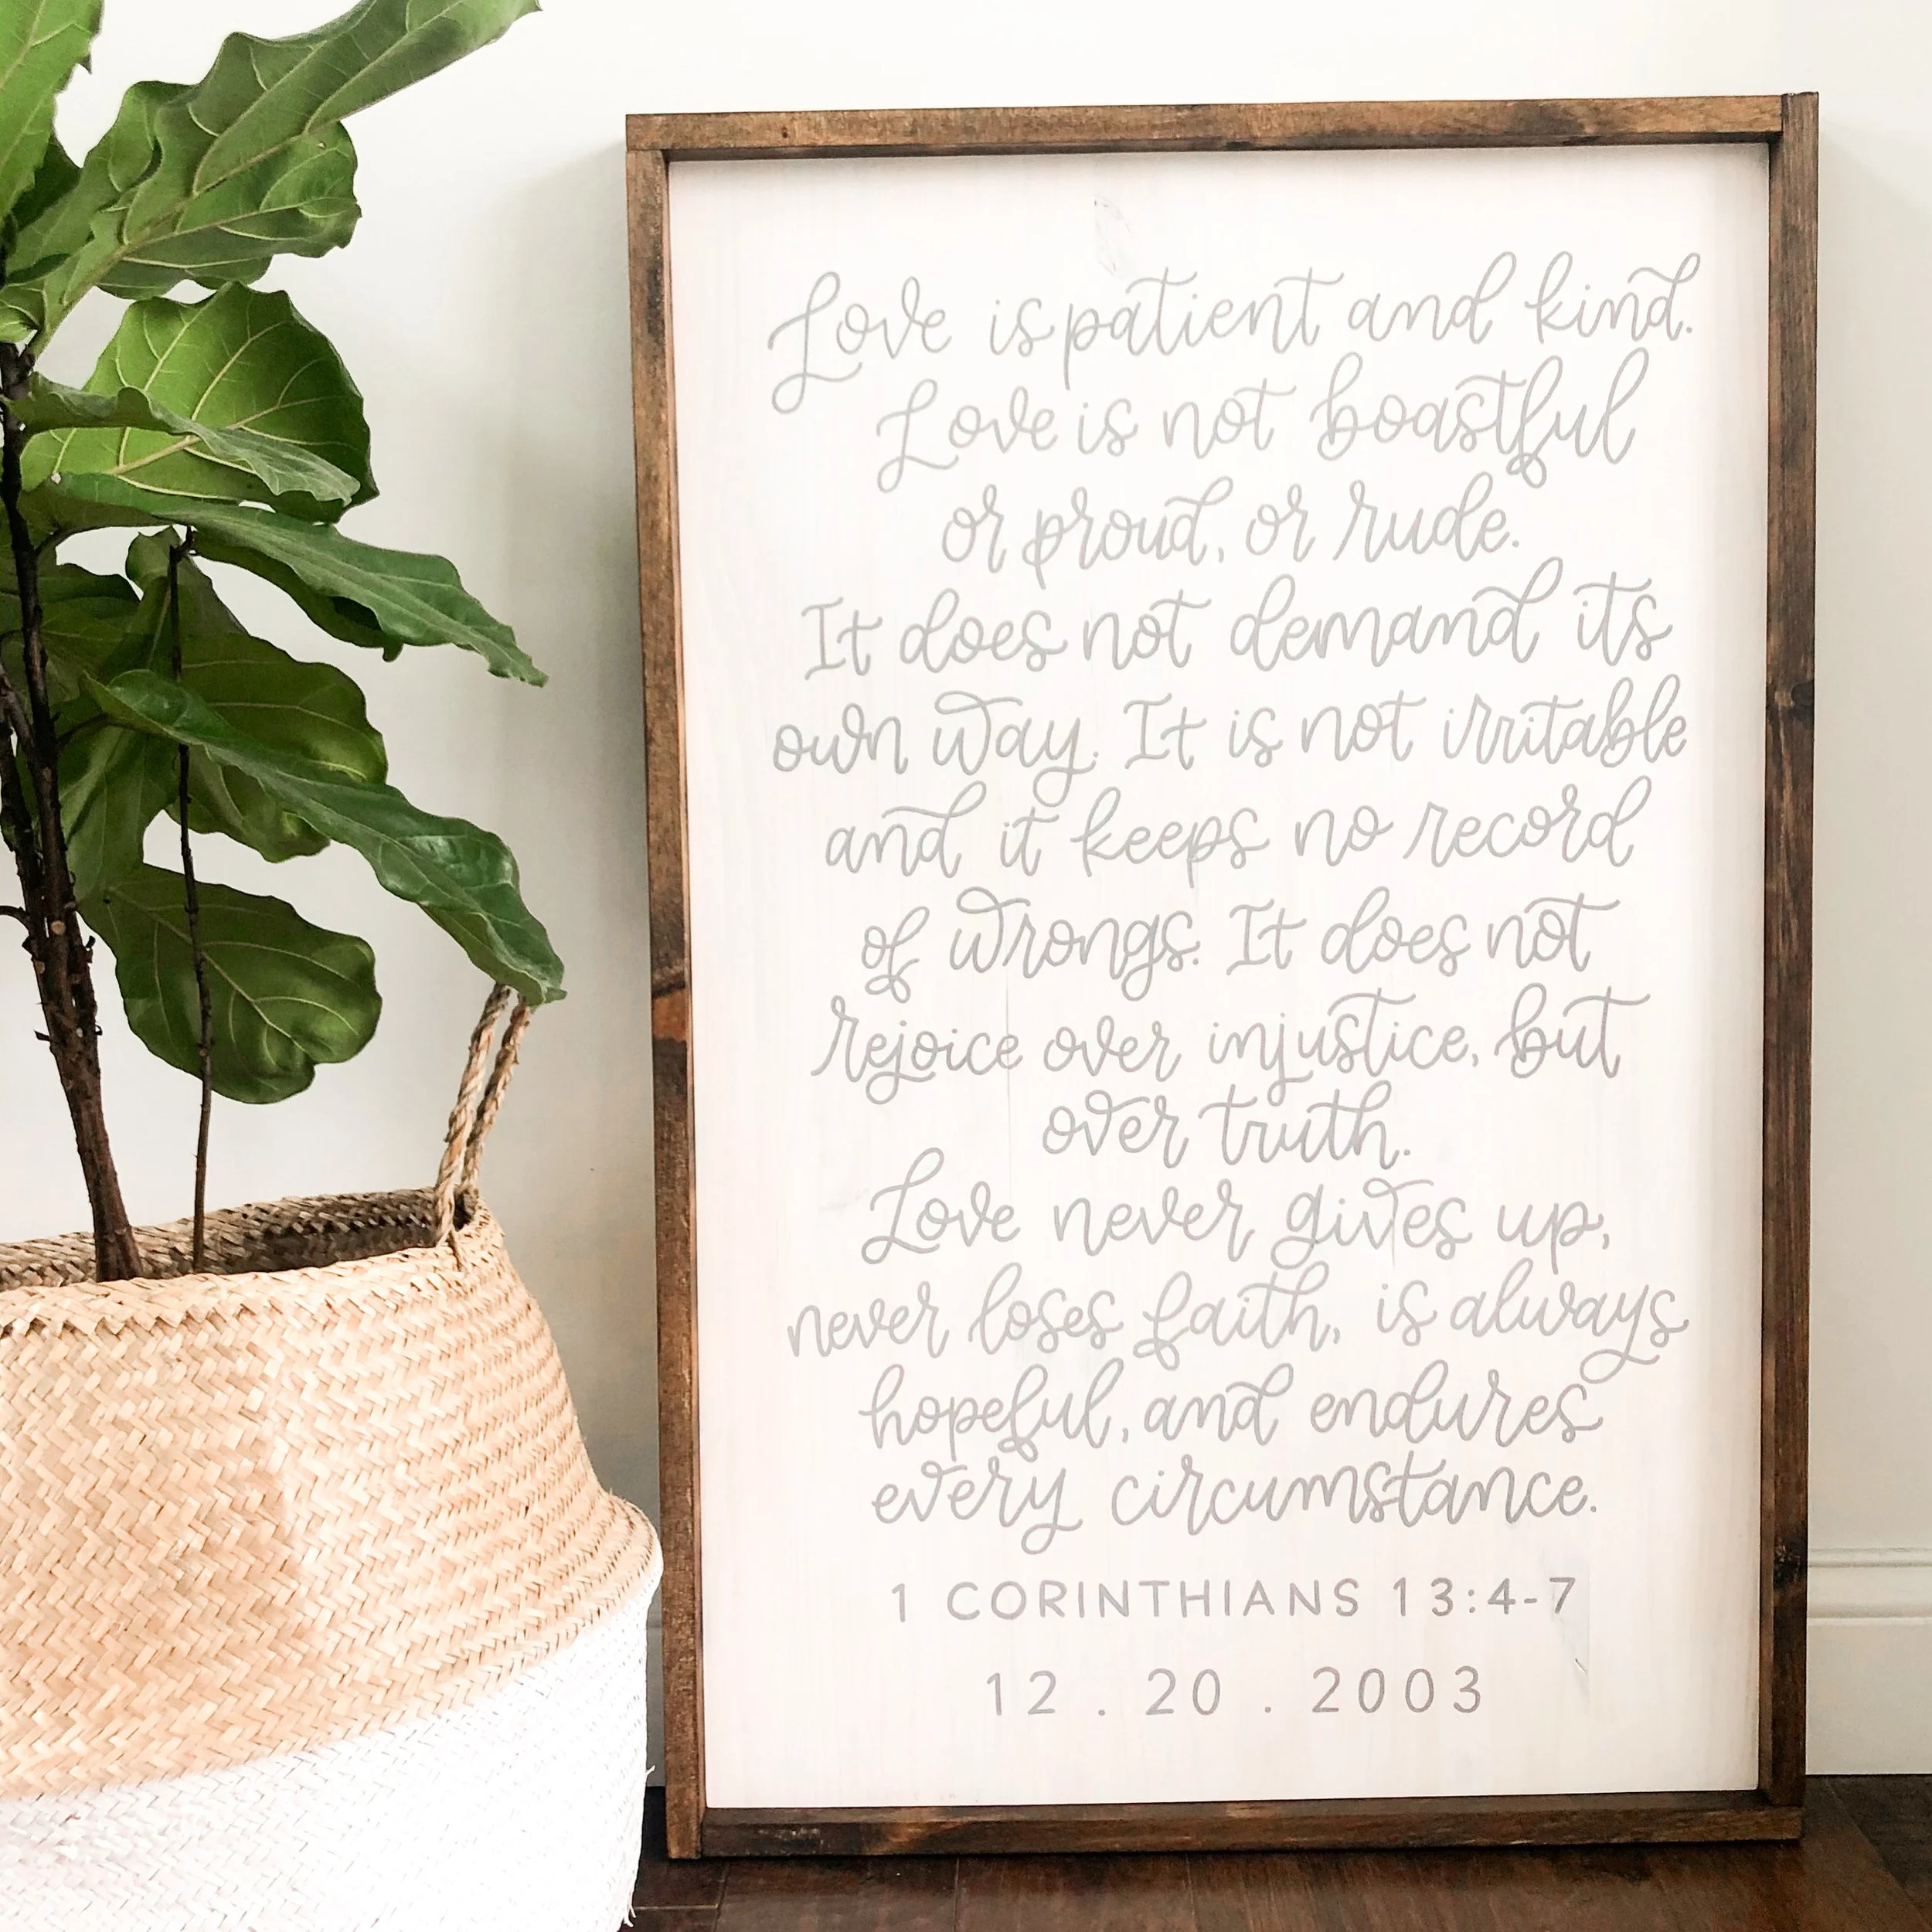 Love is patient and kind.
Love is not boastful
or proud, or rude.
It does not demand its
own way. It is not irritable
and it keeps no record
of wrongs. It does not
rejoice over injustice, but
over truth.
Love never gives up,
never loses faith, is always
hopeful, and endures
every circumstance.
1 CORINTHIANS 13:4-7
12 . 20 . 2003